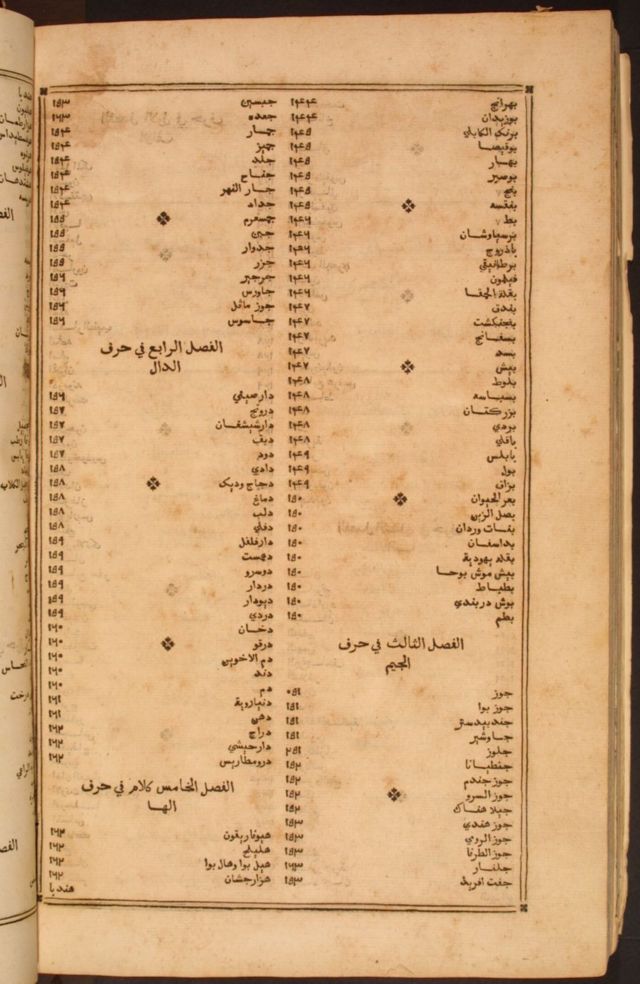 بهرانج ١٤٤
بوزيدان ١٤٤
برنك الكابلي ١٤٥
بوقيصا ١٤٥
بهار ١٤٥
بوصير ١٤٥
بنج ١٤٥
بنفسه ١٤٥
بط ١٤٦
برسياوشان ١٤٦
باذروج ١٤٦
برطانيقي ١٤٦
١٤٦
بقلة الحمقا ١٤٦
بندق ١٤٧
بنجنكشت ١٤٧
بسفانج ١٤٧
بسد ١٤٧
بيش ١٤٧
بلوط ١٤٨
بسباسه ١٤٨
بزركتان ١٤٨
بردي ١٤٨
باقلي ١٤٨
يابلس ١٤٩
بول ١٤٩
بزاق ١٤٩
بعر الحيوان ١٥٠
بصل الزيز ١٥٠
بنات وردان ١٥٠
بداسفان ١٥٠
بقلة يهودية ١٥٠
بيش موش بوحا ١٥٠
بطباط ١٥٠
بوش دربندي ١٥٠
بطم ١٥٠
الفصل الثالث في حرف
الجيم
جوز ١٥١
جوز بوا ١٥١
جندبيدستر ١٥١
جاوشير ١٥١
جلوز ١٥٢
جنطيانا ١٥٢
جوز جندم ١٥٢
جوز السرو ١٥٢
جبلاهناك ١٥٢
جوز هندي ١٥٣
جوز الرومي ١٥٣
جوز الطرفا ١٥٣
جلنار ١٥٣
جفت افريد ١٥٣
جبسين ١٥٣
جعده ١٥٣
جمار ١٥٤
جميز ١٥٤
جلد ١٥٤
جناح ١٥٤
جار النهر ١٥٤
جداد ١٥٤
جمسفرم ١٥٥
جبن ١٥٥
جدوار ١٥٥
جزر ١٥٥
جرجير ١٥٦
جاورس ١٥٦
جوز ماثل ١٥٦
جاسوس ١٥٦
الفصل الرابع في حرف
الدال
دارصيني ١٥٦
درونج ١٥٧
دارشيشغان ١٥٧
دبق ١٥٧
دود ١٥٧
دادي ١٥٨
دجاج وديك ١٥٨
دماغ ١٥٨
دلب ١٥٨
دفلي ١٥٨
دارفلفل ١٥٩
دهمست ١٥٩
دوسرو ١٥٩
دردار ١٥٩
ديودار ١٥٩
دردي ١٥٩
دخان ١٦٠
درقو ١٦٠
دم الاخوين ١٦٠
دند ١٦٠
دم ١٦٠
دنبارويه ١٦١
دهن ١٦١
دراج ١٦٢
دارحبشي ١٦٢
درومطاريس ١٦٢
الفصل الخامس كلام في حرف
الها
هيوفاريقون ١٦٢
هليلج ١٦٢
هيل بوا وهال بوا ١٦٢
هزارجشان ١٦٢
هنديا